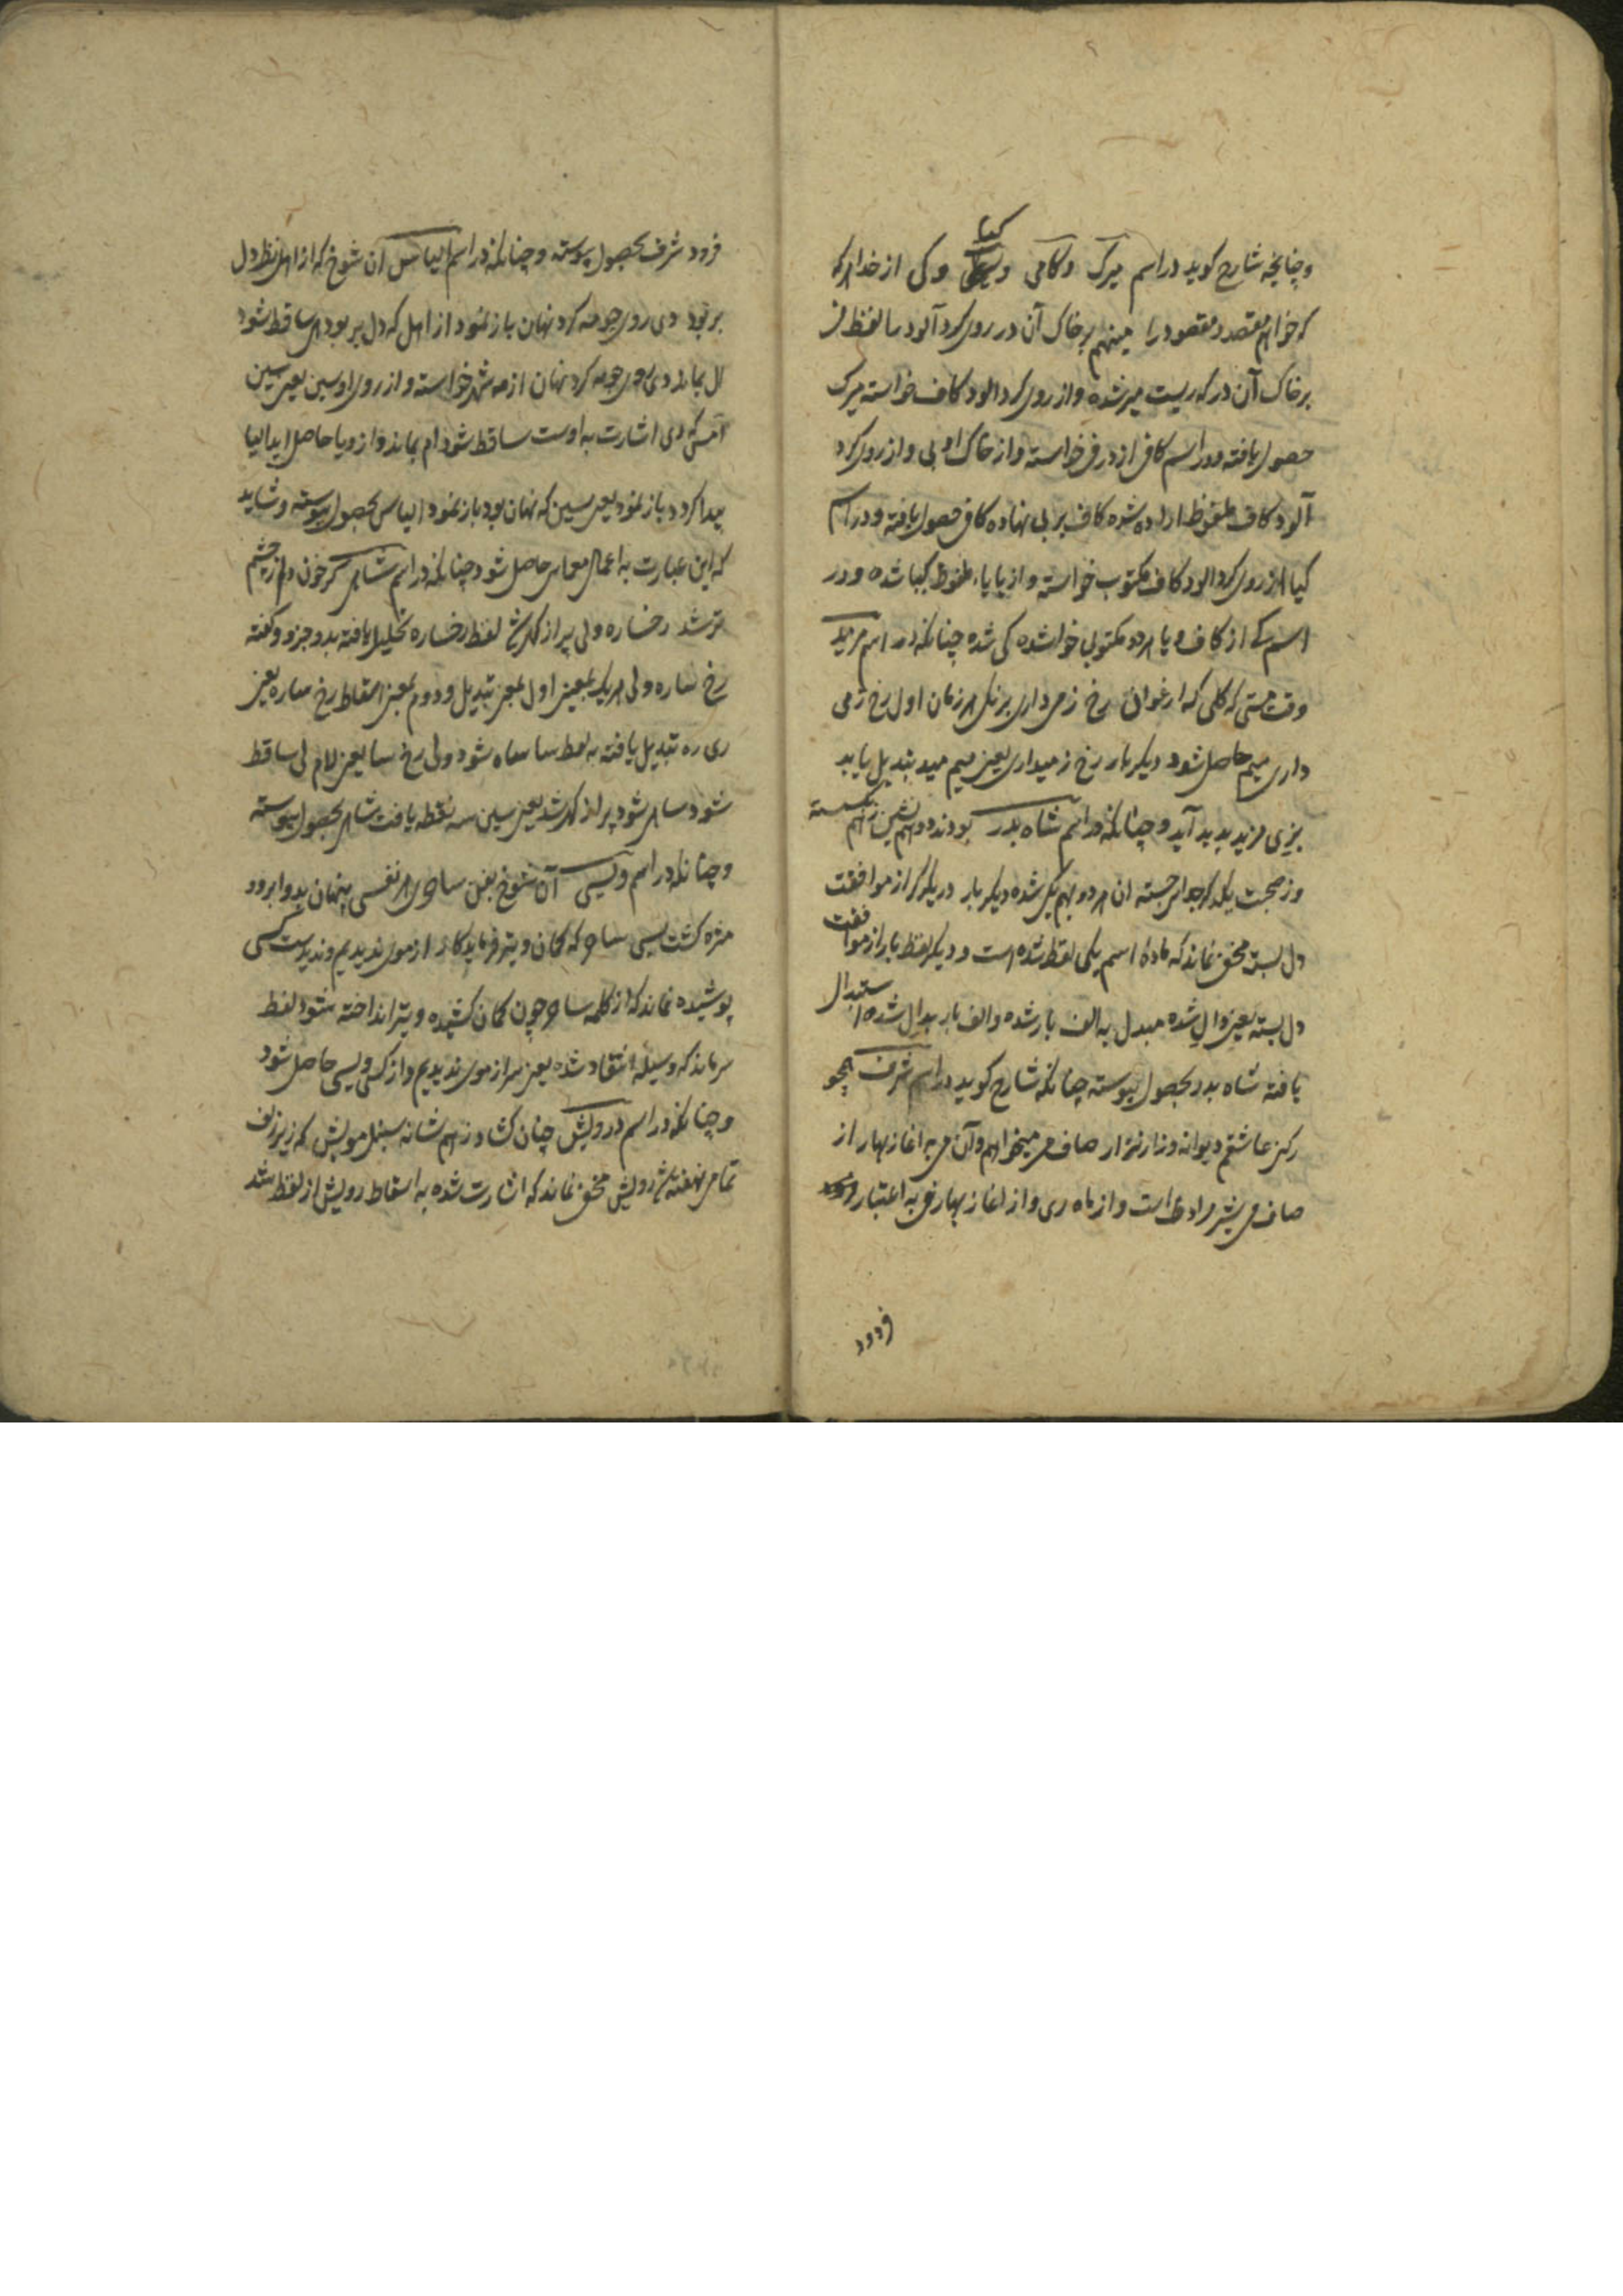 کیا
وچنانچه شارح کوید در اسم میرک وکامی و وکی از خدا
که خواهم مقصد و مقصود را مینهم بر خاک آن در روی کرد آلود
بر خاک آن در که ریست میر شده و از روی کرد الود کاف خواسته میرک
حصول یافته ودر اسم کافی از در فی خواسته و از خاک او بی و از روی کرد
آلود کاف ملفوظ اراده شده کاف بر بی نهاده کافی حصول یافته ودر اسم
کیا از روی کرد الود کاف مکتوب خواسته و از یا یاء ملفوظ کیا شده و در
اسم کی از کاف و یا هر دو مکتوبی خواشده کی شده چنانکه در اسم مرید
وقت مستی که کلی که ارغوانی رخ زمی داری برنک هر زمان اول رخ زمی
داری میم حاصل شود دیکر بار رخ زمیداری یعنی میم مید تبدیل یابد
بزی مزید پدید آید و چنانکه در اسم شاه بدر بودند دو همنشین زهم شکسته
وز صحبت یکدکر جدایی جسته ان هر دو بهم یکی شده دیکر بار در یکدکر از موافقت
دل بسته مخفی نماند که ماده اسم یکی لفظ شده است و دیکر لفظ بار از موافقت
دل بسته یعنی دال شده مبدل به الف بار شده و الف بار بدال شده استبدال
یافته شاه بدر بحصول پیوسته چنانکه شارح کوید در اسم شرف همچو
رکن عاشقم دیوانه وزار نزار صاف می میخواهم وآن می به اغاز بهار از
صاف می شیر مراد است و از ماه ری و از اغاز بهار فی به اعتبار
فرود
فرود شرف بحصول پیوسته و چنانکه در اسم الیاس ان شوخ که از اهل نظر دل
بربود دی روی چو مه کرد نهان باز نمود از اهل که دل بربود های ساقط شود
ال بماند دی روی چو مه کرد نهان از مه شهر خواسته و از روی او سین یعنی سین
که دی اشارت به اوست ساقط شود ام بماند و از و یا حاصل اید الیا
پیدا کردد باز نمود یعنی سین که نهان بود باز نمود الیاس بحصول پیوسته و شاید
که این عبارت به اعمال معمایی حاصل شود چنانکه در اسم شاهی کر خون دلم از چشم
ترشد رخساره ولی پر از کهر شد لفظ رخساره تحلیل یافته بدو جزو وکفته
رخ ساره ولی هر یک بمعنی اول بمعنی تبدیل و دوم بمعنی اسقاط رخ ساره یعنی
ری ره تبدیل یافته به لفظ سا ساه شود ولی رخ سا یعنی لام لی ساقط
شود ساهی شود پر از کهر شد یعنی سین سه نقطه یافت شاهی بحصول پیوسته
و چنانکه در اسم ویسی آن شوخ بفن ساحری هر نفسی پنهان بدو ابرو و
مژه کشت بسی ساحر که کمان و تیر فرماید کار از موی ندیدیم و ندیدست کسی
پوشیده نماند که از کلمه ساحر چون کمان کشیده و تیر انداخته شود لفظ
سر ماند که وسیله انتقاد شده یعنی سر از موی ندیدیم و از کسی ویسی حاصل شود
و چنانکه در اسم درویش چنان کشاد زهم شانه سنبل مویش که زیر زلف
تمامی نهفته شد رویش مخفی نماند که اشارت شده به اسقاط رویش از لفظ شد